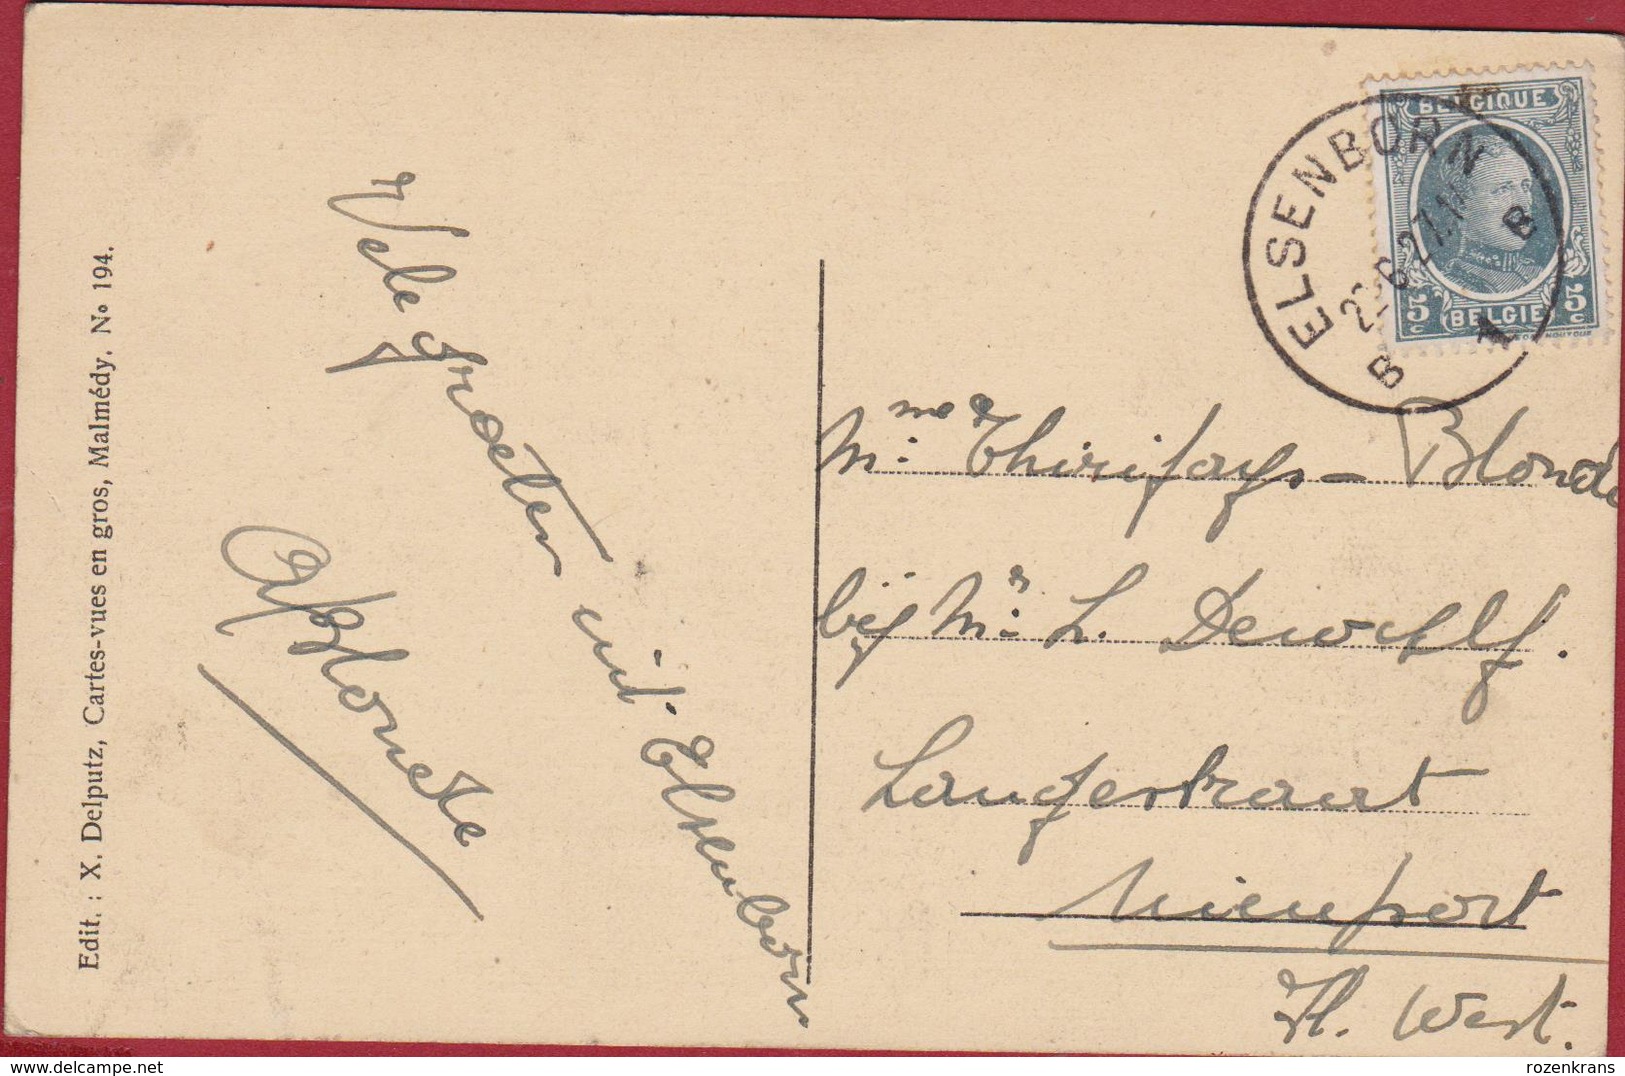 Edit. : X. Delputz, Cartes-vues en gros, Malmédy. No 194.
Vele groeten
uit Elsenborn
ABlonde
BELGIQUE
5c 5c
BELGIE
ELSENBORN
6 27
B 1 B
Mme Thirifays - Blonde
bij Mr L. Dewulf.
Langestraat
Nieuport
Fl. West.
rozenkrans